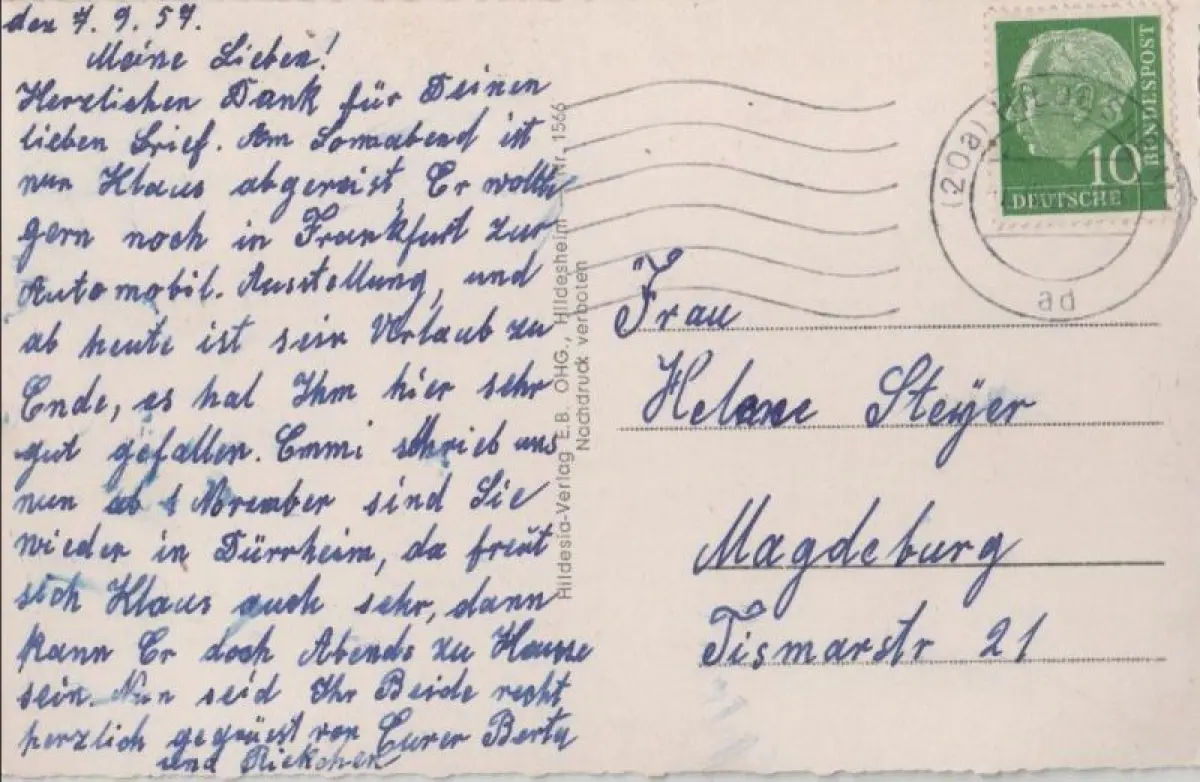 den 7. 9. 57.
Meine Lieben!
Herzlichen Dank für Deinen
lieben Brief. Am Sonnabend ist
nun Klaus abgereist, Er wollte
gern noch in Frankfurt zur
Automobil. Ausstellung, und
ab heute ist sein Urlaub zu
Ende, es hat Ihm hier sehr
gut gefallen. Emmi schrieb uns
nun ab 1 November sind Sie
wieder in Dürrheim, da freut
sich Klaus auch sehr, dann
kann Er doch Abends zu Hause
sein. Nun seid Ihr Beide recht
herzlich gegrüest von Eurer Berta
und Riekchen
Hildesia-Verlag E.B. OHG., Hildesheim - Nr. 1566
Nachdruck verboten
(20a)
ad
BUNDESPOST
10
DEUTSCHE
Frau
Helene Steyer
Magdeburg
Tismarstr 21